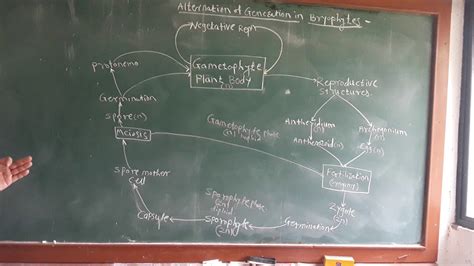 Alternation of Generation in Bryophytes -
Vegetative Repn
Gametophyte
Plant Body
(n)
Protonema
Reproductive
Structures
Germination
Spore(n)
Antheridium
(n)
Archegonium
(n)
Meiosis
Gametophyte Phase
(n) haploid
Antherozoid(n)
Egg(n)
Spore mother
Cell
Fertilization
(Syngamy)
Sporophyte Phase
(2n)
diploid
Zygote
(2n)
Capsule
Sporophyte
(2n)
Germination